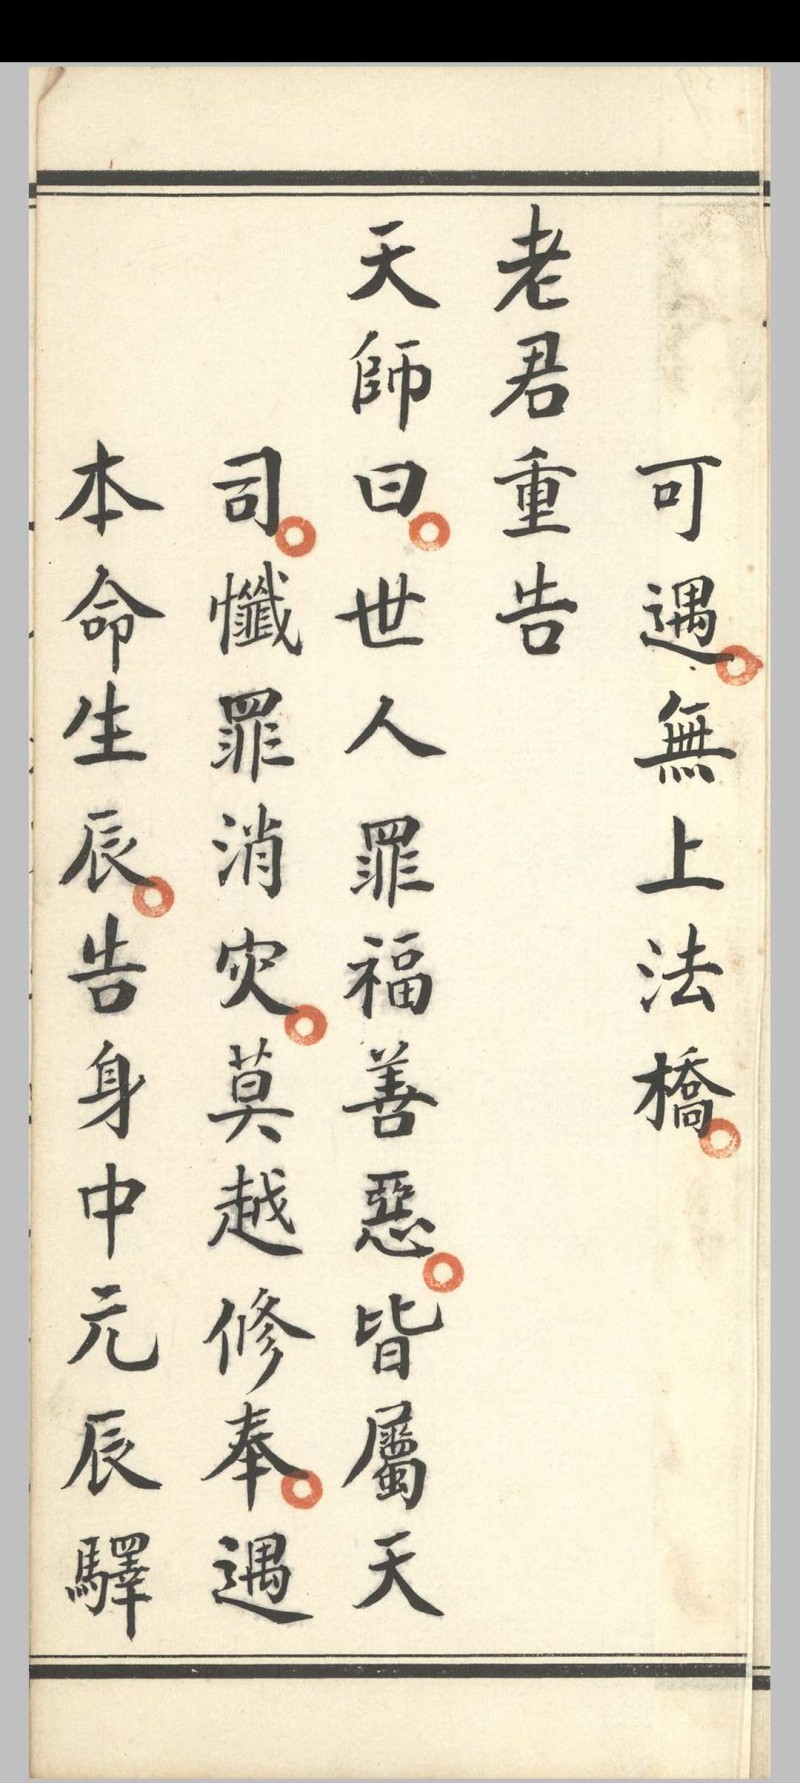 可遇。無上法橋。
老君重告
天師曰。世人罪福善惡。皆屬天
司。懺罪消灾。莫越修奉。遇
本命生辰。告身中元辰驛